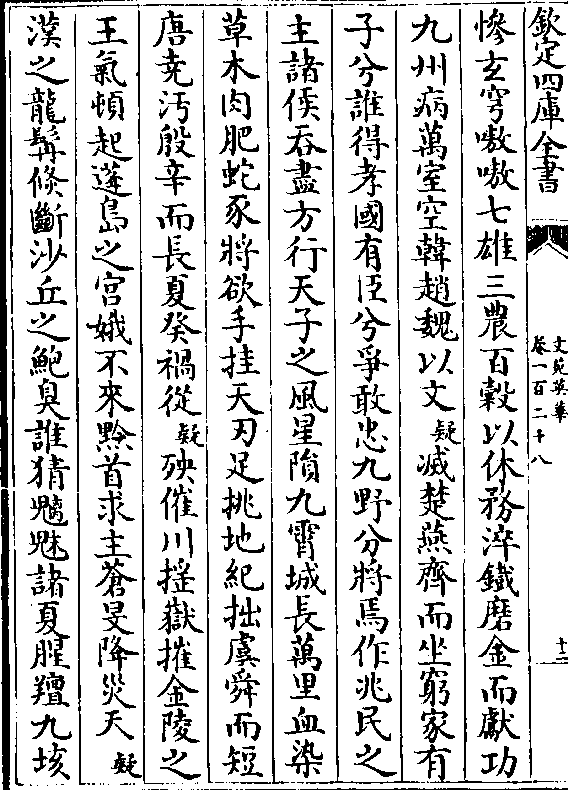 欽定四庫全書
文苑英華
卷一百二十八
十二
慘玄穹嗷嗷七雄三農百穀以休務淬鐵磨金而獻功
九州病萬室空韓趙魏以文疑滅楚燕齊而坐窮家有
子兮誰得孝國有臣兮爭敢忠九野分將焉作兆民之
主諸侯吞盡方行天子之風星隕九霄城長萬里血染
草木肉肥蛇豕將欲手挂天刃足挑地紀拙虞舜而短
唐堯汚殷辛而長夏癸禍從疑殃催川搖嶽摧金陵之
王氣頓起蓬島之宮娥不來黔首求主蒼旻降災天疑
漢之龍髯倐斷沙丘之鮑臭誰猜魑魅諸夏腥羶九垓